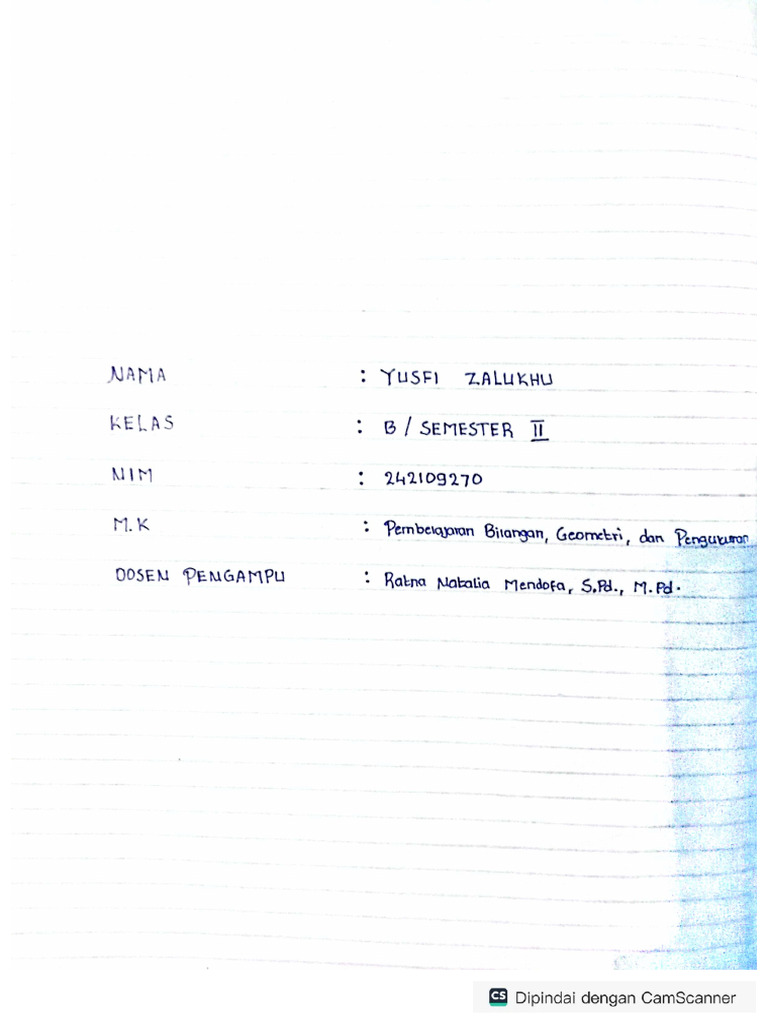 NAMA : YUSFI ZALUKHU
KELAS : B / SEMESTER II
NIM : 242109270
M.K : Pembelajaran Bilangan, Geometri, dan Pengukuran
DOSEN PENGAMPU : Ratna Natalia Mendofa, S.Pd., M.Pd.
CS Dipindai dengan CamScanner